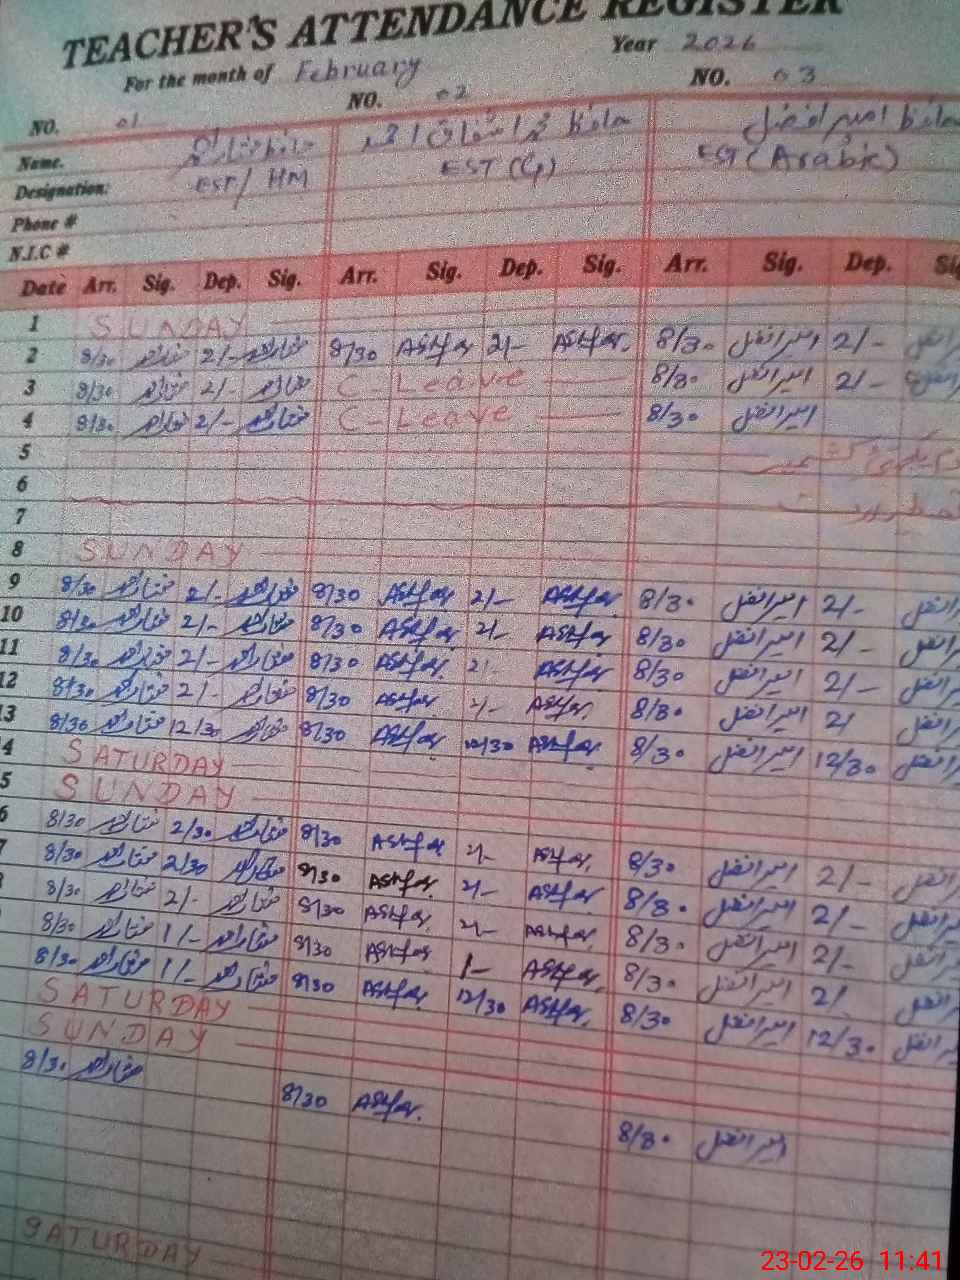 TEACHER'S ATTENDANCE REGISTER
For the month of February Year 2026
NO. 01 NO. 02 NO. 03
Name. حافظ مختار احمد حافظ محمد اشفاق احمد حافظ امیر افضل
Designation: EST/HM EST (G) EST (Arabic)
Phone #
N.I.C #
Date Arr. Sig. Dep. Sig. Arr. Sig. Dep. Sig. Arr. Sig. Dep. Sig
1 SUNDAY
2 8/30 مختار احمد 2/- مختار احمد 8/30 Ashfaq 2/- Ashfaq 8/30 امیر افضل 2/-
3 8/30 مختار احمد 2/- مختار احمد C-Leave 8/30 امیر افضل 2/-
4 8/30 مختار احمد 2/- مختار احمد C-Leave 8/30 امیر افضل
5
6
7
8 SUNDAY
9 8/30 مختار احمد 2/- مختار احمد 8/30 Ashfaq 2/- Ashfaq 8/30 امیر افضل 2/-
10 8/30 مختار احمد 2/- مختار احمد 8/30 Ashfaq 2/- Ashfaq 8/30 امیر افضل 2/-
11 8/30 مختار احمد 2/- مختار احمد 8/30 Ashfaq 2/- Ashfaq 8/30 امیر افضل 2/-
12 8/30 مختار احمد 2/- مختار احمد 8/30 Ashfaq 2/- Ashfaq 8/30 امیر افضل 2/
13 8/30 مختار احمد 12/30 مختار احمد 8/30 Ashfaq 12/30 Ashfaq 8/30 امیر افضل 12/30
4 SATURDAY
5 SUNDAY
6 8/30 مختار احمد 2/30 مختار احمد 8/30 Ashfaq 2/- Ashfaq 8/30 امیر افضل 2/-
7 8/30 مختار احمد 2/30 مختار احمد 8/30 Ashfaq 2/- Ashfaq 8/30 امیر افضل 2/-
8/30 مختار احمد 2/- مختار احمد 8/30 Ashfaq 2/- Ashfaq 8/30 امیر افضل 2/-
8/30 مختار احمد 1/- مختار احمد 8/30 Ashfaq 1- Ashfaq 8/30 امیر افضل 2/
8/30 مختار احمد 1/- مختار احمد 8/30 Ashfaq 12/30 Ashfaq 8/30 امیر افضل 12/30
SATURDAY
SUNDAY
8/30 مختار احمد 8/30 Ashfaq 8/30 امیر افضل
SATURDAY
23-02-26 11:41